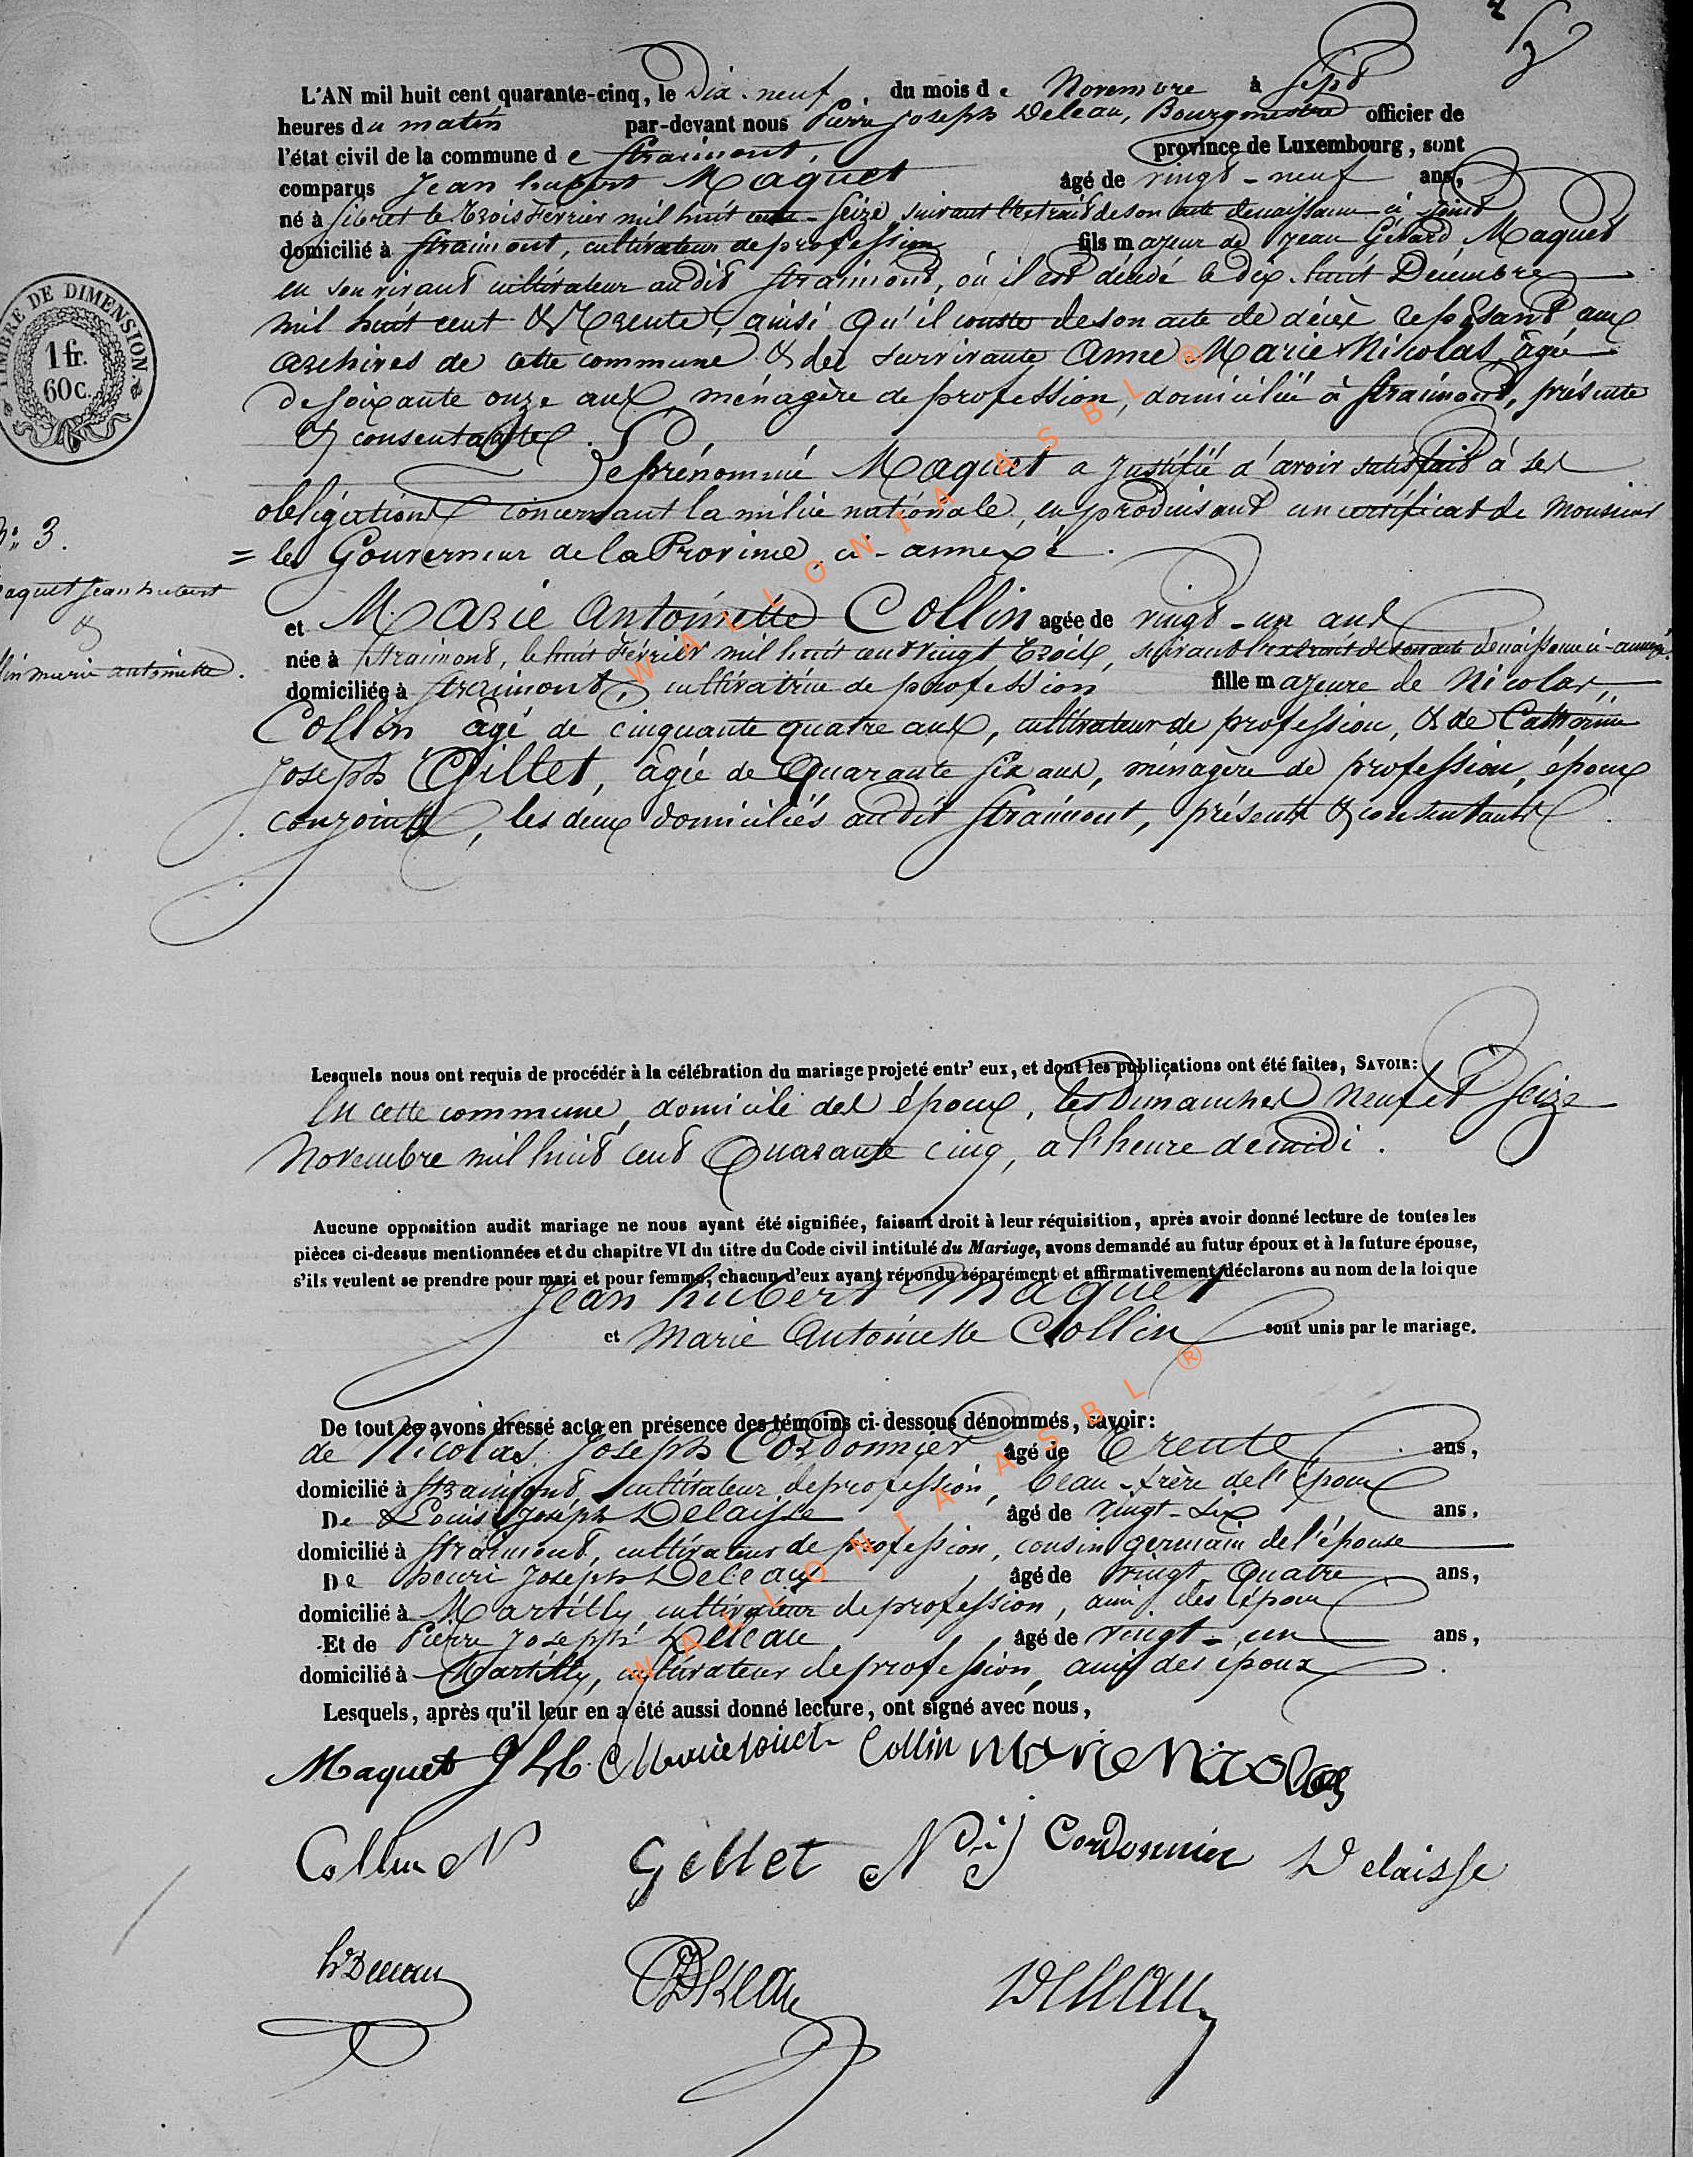 L'AN mil huit cent quarante-cinq, le Dix-neuf du mois de Novembre à sept
heures du matin par-devant nous Pierre Joseph Deleau, Bourgmestre officier de
l'état civil de la commune de Straimont, province de Luxembourg, sont
comparus Jean hubert Maquet âgé de vingt-neuf ans,
né à Sibret le trois Fevrier mil huit cent-seize, suivant l'extrait de son acte de naissance ci-joint
domicilié à Straimont, cultivateur de profession fils majeur de Jean Gérard Maquet
en son vivant cultivateur audit Straimont, où il est décédé le dix-huit Décembre
mil huit cent & Trente, ainsi qu'il conste de son acte de décès reposant aux
archives de cette commune & de survivante Anne Marie Nicolas âgée
de soixante onze ans, ménagère de profession, domiciliée à Straimont, présente
& consentante.
Le prénommé Maquet a justifié d'avoir satisfait à ses
obligations concernant la milice nationale, en produisant un certificat de Monsieur
= le Gouverneur de la Province ci-annexé.
N° 3.
Maquet Jean hubert
&
Collin marie antoinette.
TIMBRE DE DIMENSION
1 fr.
60 c.
et Marie Antoinette Collin agée de vingt-un ans
née à Straimont, le huit Février mil huit cent vingt Trois, suivant l'extrait de son acte de naissance ci-annexé.
domiciliée à Straimont, cultivatrice de profession fille majeure de Nicolas
Collin âgé de cinquante quatre ans, cultivateur de profession, & de Catherine
Joseph Gillet, âgée de Quarante six ans, ménagère de profession, époux
conjoints, les deux domiciliés audit Straimont, présents & consentants.
Lesquels nous ont requis de procédér à la célébration du mariage projeté entr' eux, et dont les publications ont été faites, SAVOIR:
En cette commune, domicile des époux, les Dimanches neuf et seize
Novembre mil huit cent Quarante cinq, à l'heure de midi.
Aucune opposition audit mariage ne nous ayant été signifiée, faisant droit à leur réquisition, après avoir donné lecture de toutes les
pièces ci-dessus mentionnées et du chapitre VI du titre du Code civil intitulé du Mariage, avons demandé au futur époux et à la future épouse,
s'ils veulent se prendre pour mari et pour femme; chacun d'eux ayant répondu séparément et affirmativement, déclarons au nom de la loi que
Jean hubert Maquet
et Marie Antoinette Collin sont unis par le mariage.
De tout ce avons dressé acte en présence des témoins ci-dessous dénommés, savoir:
de Nicolas Joseph Cordonnier âgé de Trente ans,
domicilié à Straimont, cultivateur de profession, beau-frère de l'époux
De Louis Joseph Delaisse âgé de vingt-six ans,
domicilié à Straimont, cultivateur de profession, cousin germain de l'épouse
De henri Joseph Deleau âgé de vingt Quatre ans,
domicilié à Martilly, cultivateur de profession, ami des époux
Et de Pierre Joseph Deleau âgé de vingt-un ans,
domicilié à Martilly, cultivateur de profession, ami des époux.
Lesquels, après qu'il leur en a été aussi donné lecture, ont signé avec nous,
Maquet J h Collin Marie Nicolas
Collin N Gillet N J Cordonnier Delaisse
hDeleau PJDeleau Deleau
WALLONIA ASBL ®
WALLONIA ASBL ®